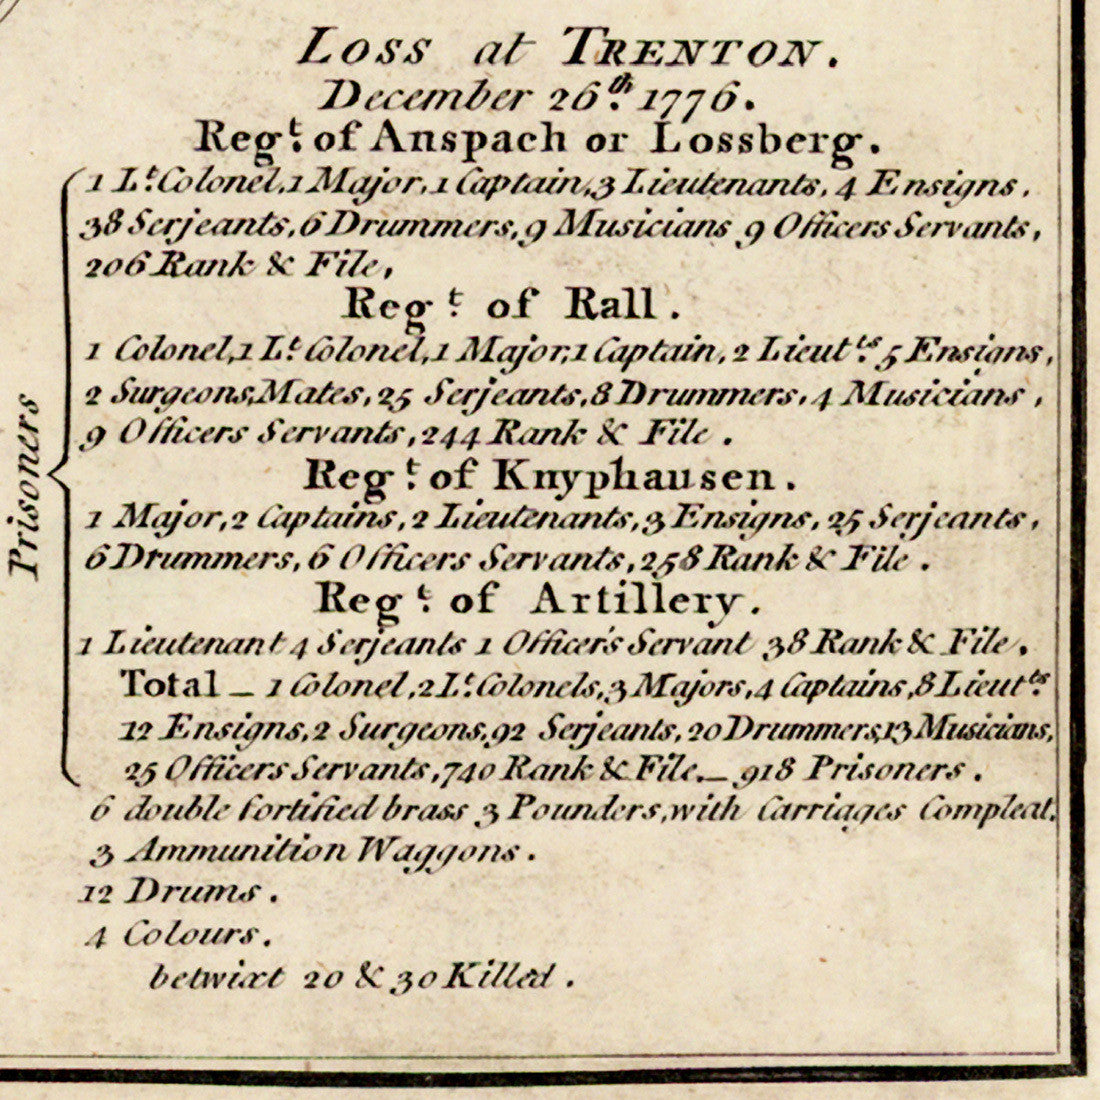 Loss at TRENTON.
December 26th. 1776.
Regt. of Anspach or Lossberg.
1 Lt. Colonel, 1 Major, 1 Captain, 3 Lieutenants, 4 Ensigns,
38 Serjeants, 6 Drummers, 9 Musicians 9 Officers Servants,
206 Rank & File,
Regt. of Rall.
1 Colonel, 1 Lt. Colonel, 1 Major, 1 Captain, 2 Lieutts. 5 Ensigns,
2 Surgeons, Mates, 25 Serjeants, 8 Drummers, 4 Musicians,
9 Officers Servants, 244 Rank & File.
Prisoners
Regt. of Knyphausen.
1 Major, 2 Captains, 2 Lieutenants, 3 Ensigns, 25 Serjeants,
6 Drummers, 6 Officers Servants, 258 Rank & File.
Regt. of Artillery.
1 Lieutenant 4 Serjeants 1 Officer's Servant 38 Rank & File.
Total — 1 Colonel, 2 Lt. Colonels, 3 Majors, 4 Captains, 8 Lieutts
12 Ensigns, 2 Surgeons, 92 Serjeants, 20 Drummers, 13 Musicians,
25 Officers Servants, 740 Rank & File. — 918 Prisoners.
6 double fortified brass 3 Pounders, with Carriages Compleat.
3 Ammunition Waggons.
12 Drums.
4 Colours.
betwixt 20 & 30 Killed.